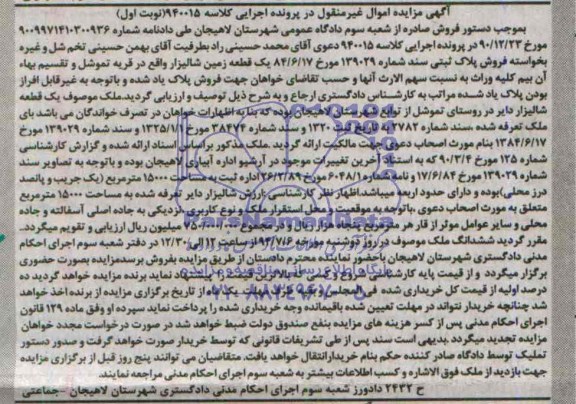 آگهی مزایده اموال غیرمنقول در پرونده اجرایی کلاسه ۹۴۰۰۱۵(نوبت اول)
بموجب دستور فروش صادره از شعبه سوم دادگاه عمومی شهرستان لاهیجان طی دادنامه شماره ۹۰۰۹۹۷۱۴۱۰۳۰۰۹۳۶
مورخ ۹۰/۱۲/۲۳ در پرونده اجرایی کلاسه ۹۴۰۰۱۵ دعوی آقای محمد حسینی راد بطرفیت آقای بهمن حسینی تخم شل و غیره
بخواسته فروش پلاک ثبتی سند شماره ۱۳۹۰۲۹ مورخ ۸۴/۶/۱۷ یک قطعه زمین شالیزار واقع در قریه تموشل و تقسیم بهاء
آن بیم کلیه وراث به نسبت سهم الارث آنها و حسب تقاضای خواهان جهت فروش پلاک یاد شده و باتوجه به غیرقابل افراز
بودن پلاک یاد شده مراتب به کارشناس دادگستری ارجاع و به شرح ذیل توصیف و ارزیابی گردید.ملک موصوف یک قطعه
شالیزار دایر در روستای تموشل از توابع شهرستان لاهیجان بوده که بنا به اظهارات خواهان در تصرف خواندگان می باشد بای
ملک تعرفه شده ،سند شماره ۲۷۸۲ به تاریخ ثبت ۱۳۲۰ و سند شماره ۳۸۴۷۴ مورخ ۱۳۲۵/۸/۱ و سند شماره ۱۳۹۰۲۹ مورخ
۱۳۸۴/۶/۱۷ بنام مورث اصحاب دعوی جهت مالکیت ارائه گردید .ملک مذکور براساس اسناد ارائه شده و گزارش کارشناسی
شماره ۱۲۵ مورخ ۹۰/۳/۴ که به استناد آخرین تغییرات موجود در آرشیو اداره آبیاری لاهیجان بوده و باتوجه به تصاویر سند
شماره ۱۳۹۰۲۹ مورخ ۱۷/۶/۸۴ و نامه شماره ۶۰۴۸/۱ مورخ ۲۶/۳/۸۹ اداره ثبت به مساحت ۱۵۰۰۰ مترمربع (یک جریب و پانصد
درز محلی)بوده و دارای حدود اربعه میباشد.اظهار نظر کارشناسی :ارزش شالیزار دایر تعرفه شده به مساحت ۱۵۰۰۰ مترمربع
متعلق به مورث اصحاب دعوی ،باتوجه به موقعیت و محل استقرار ملک و نوع کاربری نزدیکی به جاده اصلی آسفالته و جاده
محلی و سایر عوامل موثر از قار هر مترمربع پنجاه هزار ریال و در مجموع ۷۵۰/۰۰۰/۰۰۰ میلیون ریال ارزیابی و تقویم میگردد.
مقرر گردید ششدانگ ملک موصوف در روز دوشنبه مورخه ۹۴/۷/۶ از ساعت ۱۲ الی ۱۲/۳۰ در دفتر شعبه سوم اجرای احکام
مدنی دادگستری شهرستان لاهیجان باحضور نماینده محترم دادستان از طریق مزایده بفروش برسد مزایده بصورت حضوری
برگزار میگردد و از قیمت پایه کارشناسی پیشنهاد نماید برنده مزایده خواهد گردید ده
درصد اولیه از قیمت کل خریداری شده فی المجلس یک ماه از تاریخ برگزاری مزایده از برنده اخذ خواهد
شد چنانچه خریدار نتواند در مهلت تعیین شده باقیمانده وجه خریداری شده را پرداخت نماید سپرده او وفق ماده ۱۲۹ قانون
اجرای احکام مدنی پس از کسر هزینه های مزایده بنفع صندوق دولت ضبط خواهد شد در صورت درخواست مجدد خواهان
مزایده تجدید میگردد .بدیهی است سند پس از طی تشریفات قانونی که توسط خریدار صورت خواهد گرفت و صدور دستور
تملیک توسط دادگاه صادر کننده حکم بنام خریدار انتقال خواهد یافت. متقاضیان می توانند پنج روز قبل از برگزاری مزایده
جهت بازدید از ملک فوق الاشاره و کسب اطلاعات بیشتر به شعبه سوم اجرای احکام مدنی مراجعه نمایند.
ح ۲۴۳۲ دادورز شعبه سوم اجرای احکام مدنی دادگستری شهرستان لاهیجان - جماعتی